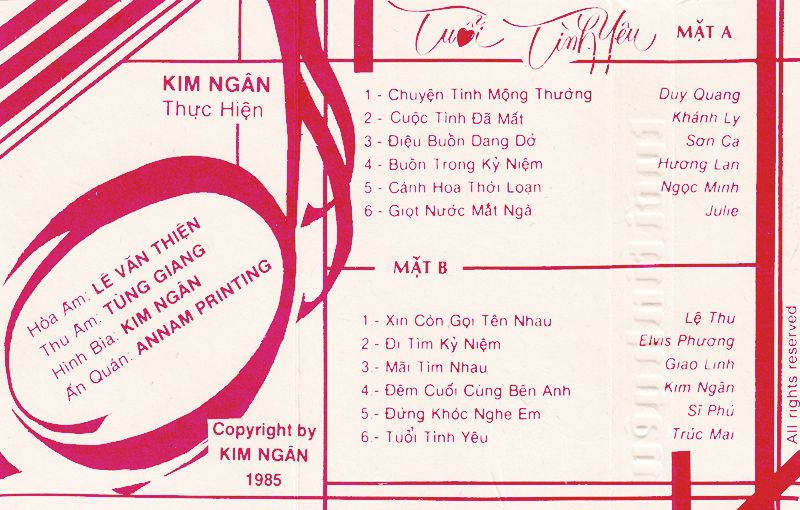 Tuổi Tình Yêu
MẶT A
KIM NGÂN
Thực Hiện
1 - Chuyện Tình Mộng Thường Duy Quang
2 - Cuộc Tình Đã Mất Khánh Ly
3 - Điệu Buồn Dang Dở Sơn Ca
4 - Buồn Trong Kỷ Niệm Hương Lan
5 - Cánh Hoa Thời Loạn Ngọc Minh
6 - Giọt Nước Mắt Ngà Julie
MẶT B
1 - Xin Còn Gọi Tên Nhau Lệ Thu
2 - Đi Tìm Kỷ Niệm Elvis Phương
3 - Mãi Tìm Nhau Giao Linh
4.- Đêm Cuối Cùng Bên Anh Kim Ngân
5.- Đừng Khóc Nghe Em Sĩ Phú
6.- Tuổi Tình Yêu Trúc Mai
Hòa Âm: LÊ VĂN THIỆN
Thu Âm: TÙNG GIANG
Hình Bìa: KIM NGÂN
Ấn Quán: ANNAM PRINTING
Copyright by
KIM NGÂN
1985
All rights reserved